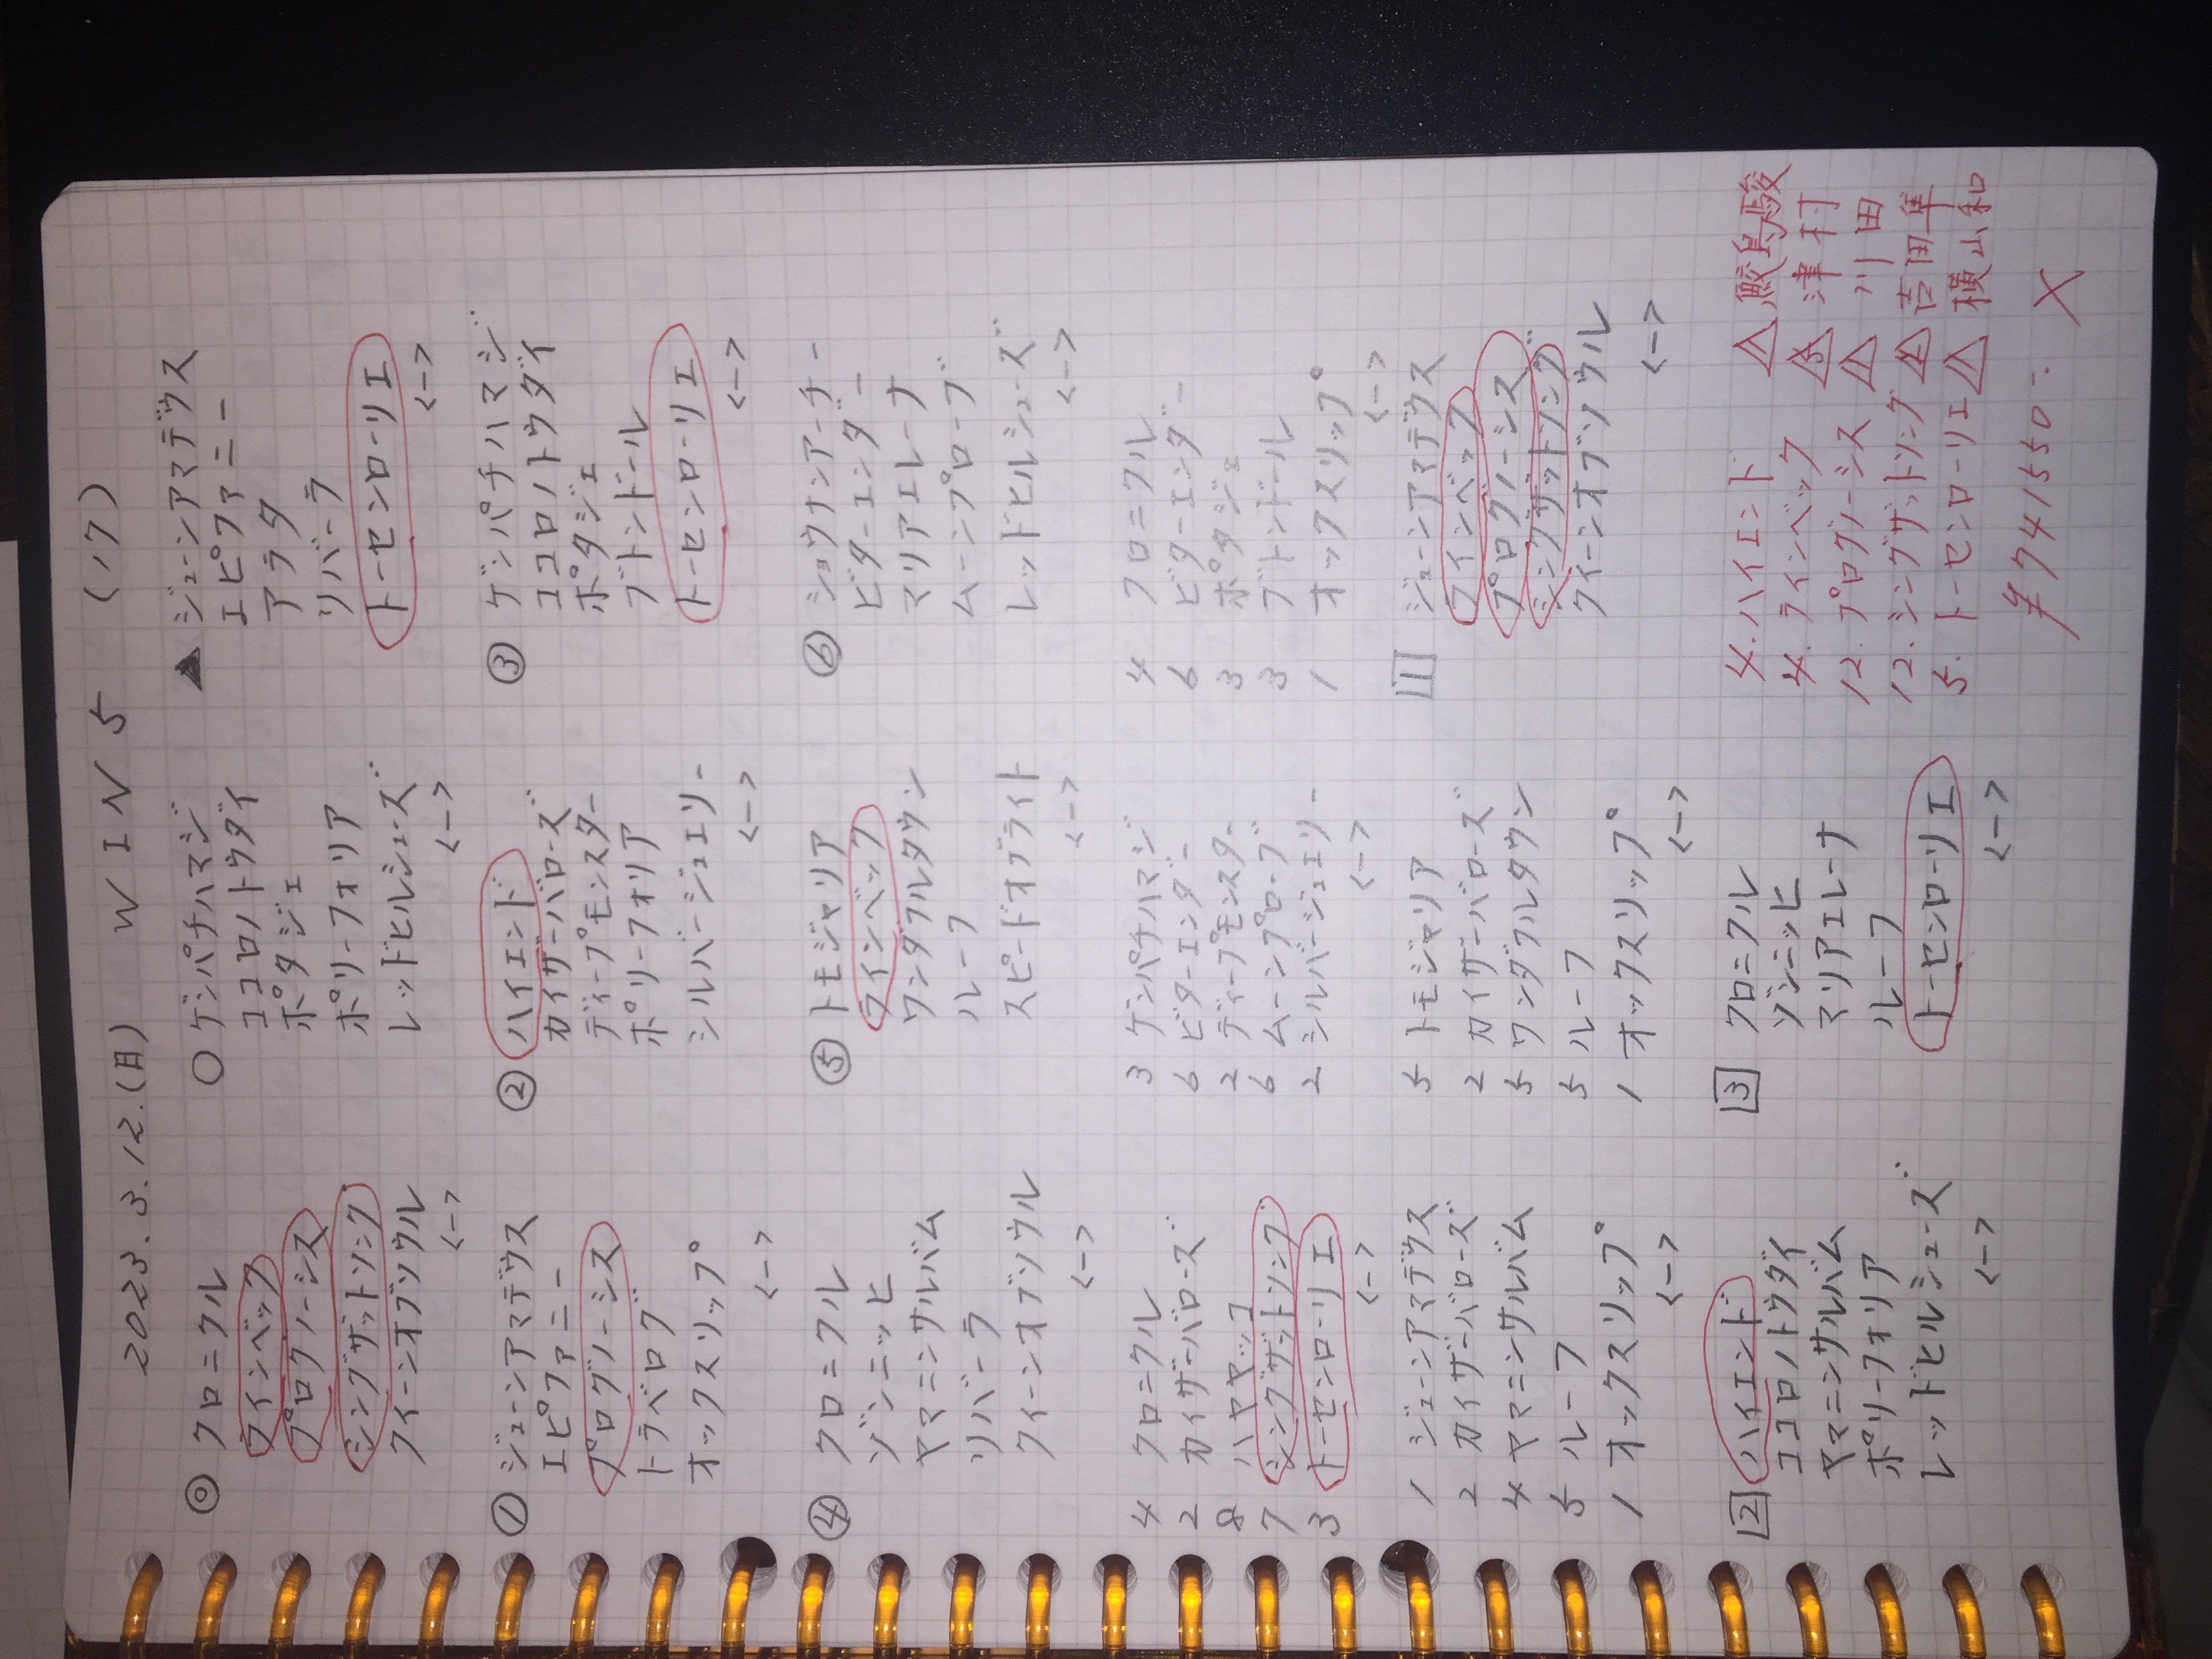 2023.3.12.(日) WIN5 (17)
◎ クロニクル
ラインベック
プログノーシス
シングザットソング
クィーンオブソウル
<-->
○ ゲンパチハマジ
ココロノトウダイ
ポタジェ
ポリーフォリア
レッドヒルシューズ
<-->
▲ ジューンアマデウス
エピファニー
アラタ
リバーラ
トーセンローリエ
<-->
① ジューンアマデウス
エピファニー
プログノーシス
トラベログ
オックスリップ
<-->
② ハイエンド
カイザーバローズ
ディープモンスター
ポリーフォリア
シルバージュエリー
<-->
③ ゲンパチハマジ
ココロノトウダイ
ポタジェ
ブトンドール
トーセンローリエ
<-->
④ クロニクル
ゾンニッヒ
ヤマニンサルバム
リバーラ
クィーンオブソウル
<-->
⑤ トモジャリア
ラインベック
ワンダフルタウン
ルーフ
スピードオブライト
<-->
⑥ ショウナンアーチー
ビターエンダー
マリアエレーナ
ムーンプローブ
レッドヒルシューズ
<-->
4 クロニクル
2 カイザーバローズ
8 ハヤヤッコ
7 シングザットソング
3 トーセンローリエ
<-->
3 ゲンパチハマジ
6 ビターエンダー
2 ディープモンスター
6 ムーンプローブ
2 シルバージュエリー
<-->
4 クロニクル
6 ビターエンダー
3 ポタジェ
3 ブトンドール
1 オックスリップ
<-->
1 ジューンアマデウス
2 カイザーバローズ
4 ヤマニンサルバム
5 ルーフ
1 オックスリップ
<-->
5 トモジャリア
2 カイザーバローズ
5 ワンダフルタウン
5 ルーフ
1 オックスリップ
<-->
1 ジューンアマデウス
ラインベック
プログノーシス
シングザットソング
クィーンオブソウル
<-->
2 ハイエンド
ココロノトウダイ
ヤマニンサルバム
ポリーフォリア
レッドヒルシューズ
<-->
3 クロニクル
ゾンニッヒ
マリアエレーナ
ルーフ
トーセンローリエ
<-->
4. ハイエンド △1 鮫島駿
4. ラインベック △5 津村
12. プログノーシス △1 川田
12. シングザットソング △2 吉田隼
5. トーセンローリエ △1 横山和
¥741550- ×